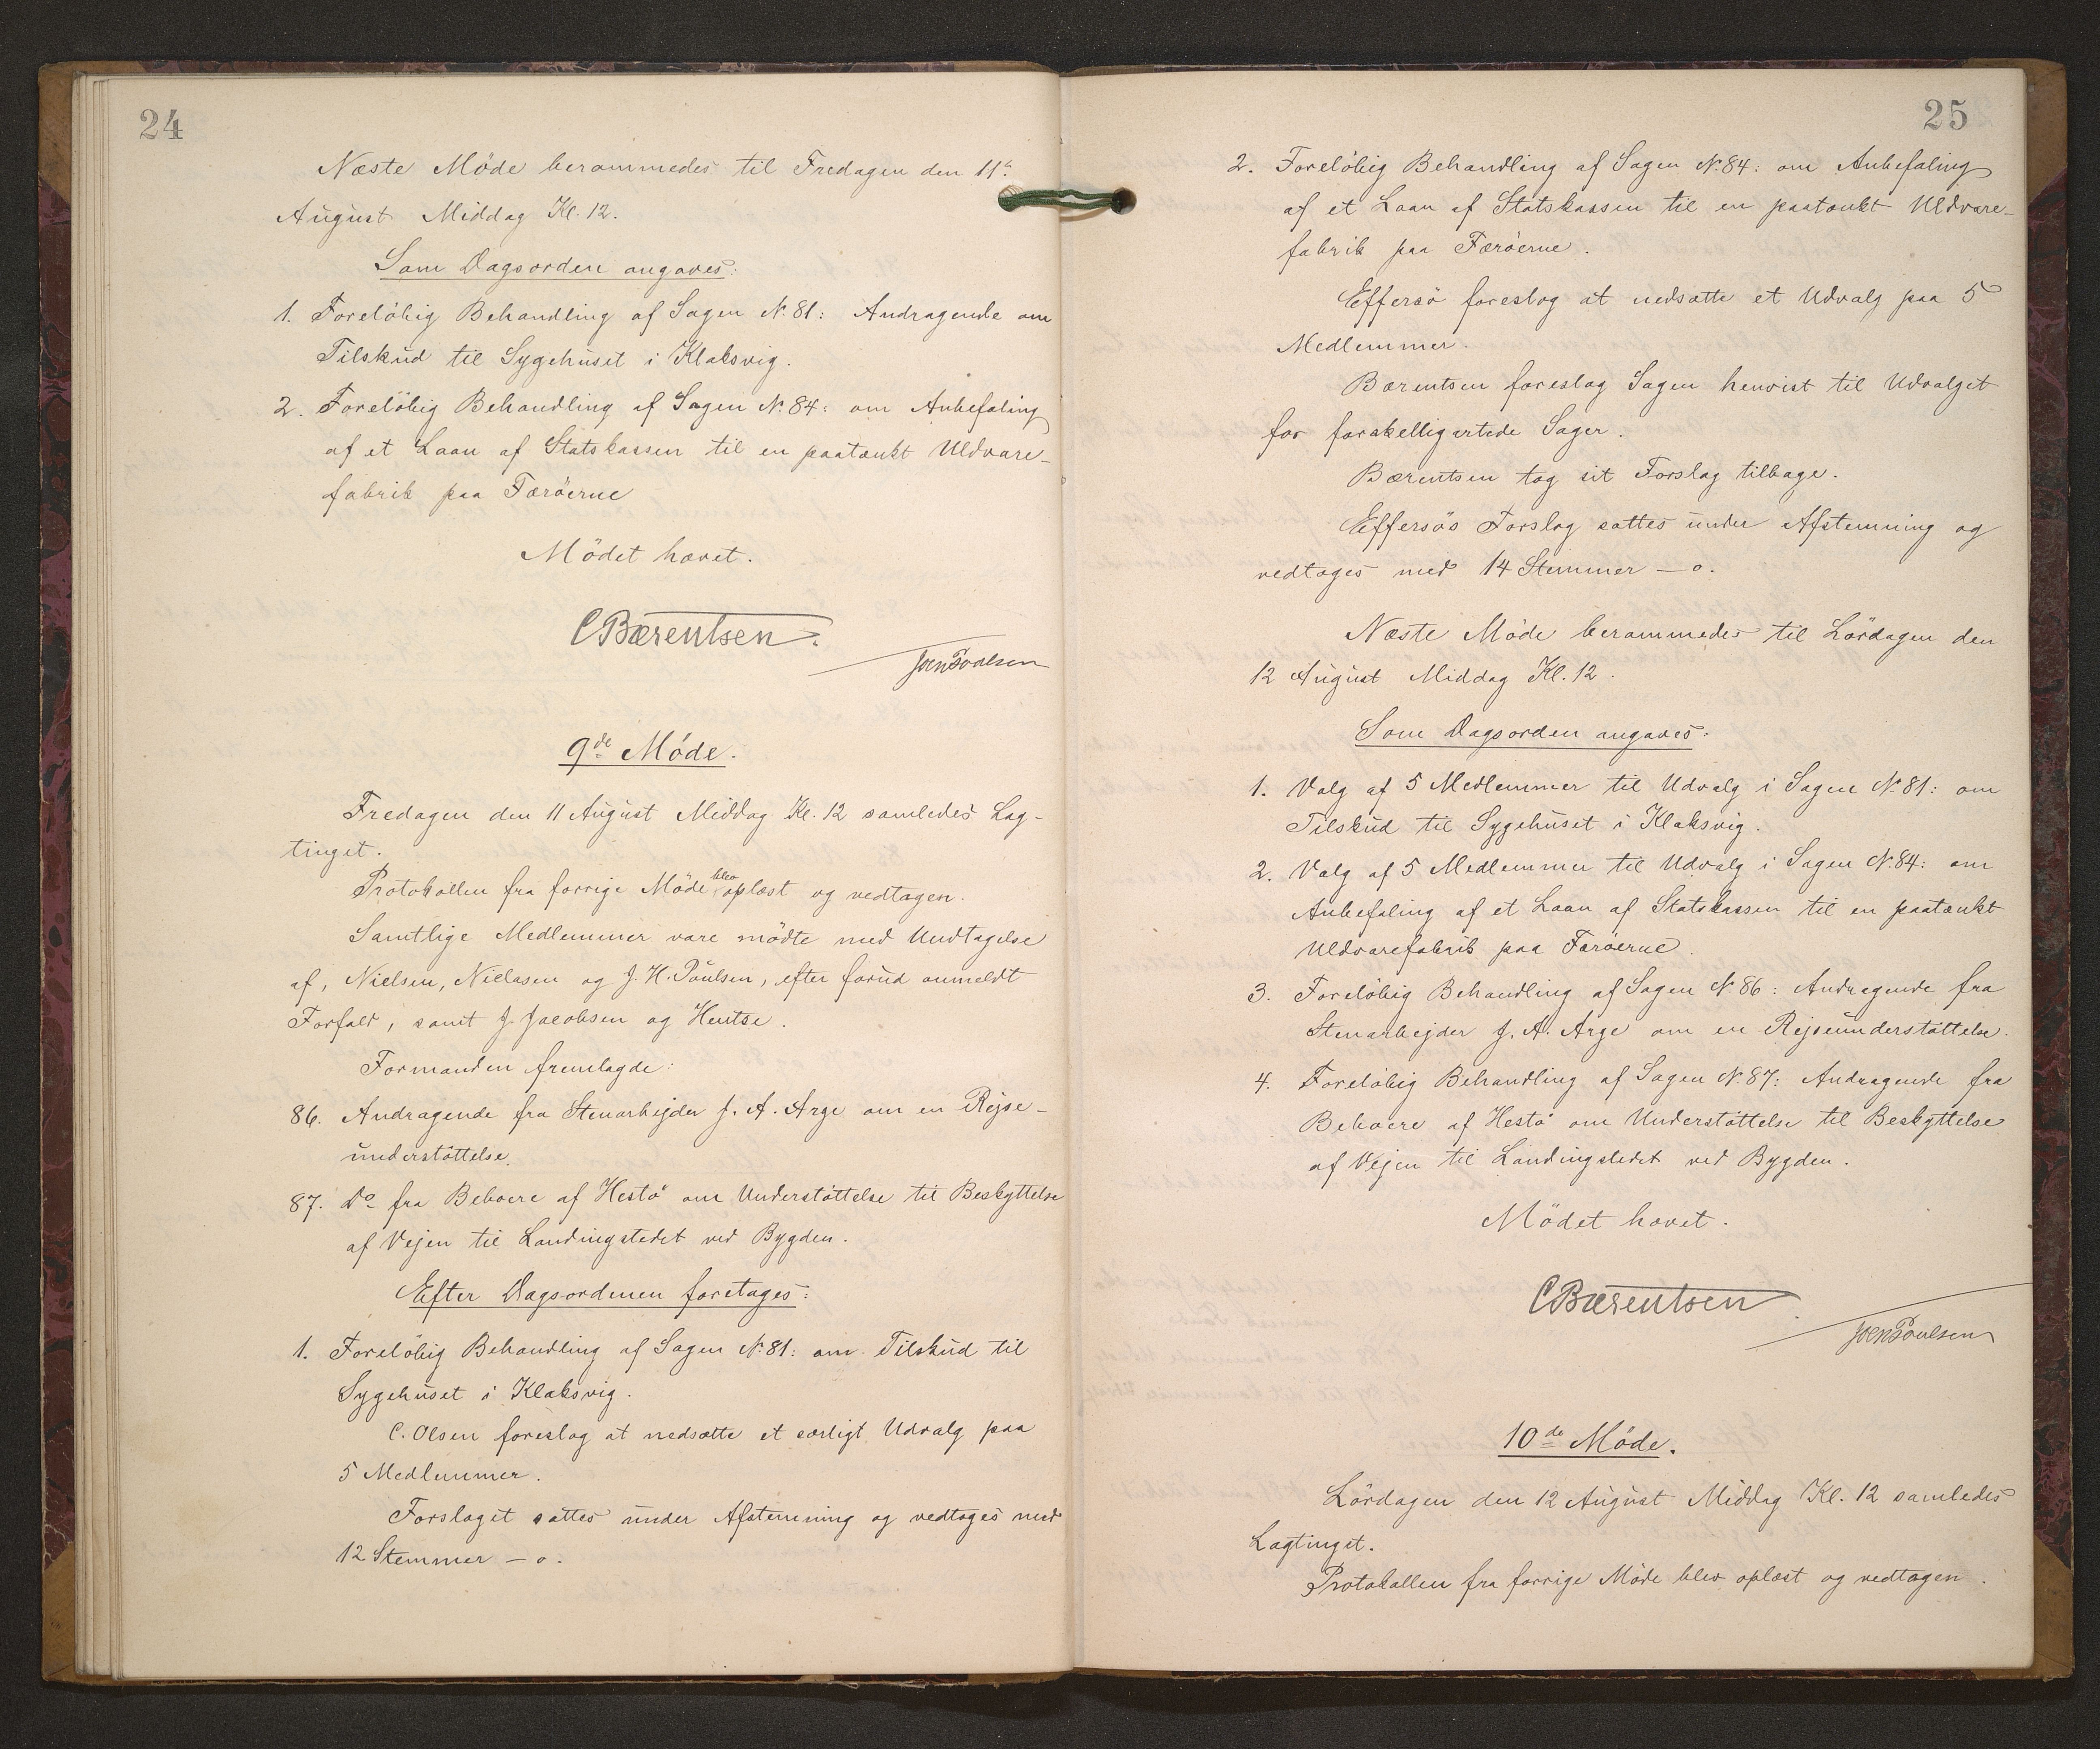 24
Næste Möde berammedes til Fredagen den 11te
August Middag Kl. 12.
Som Dagsorden angaves:
1. Forelöbig Behandling af Sagen No. 81: Andragende om
Tilskud til Sygehuset i Klaksvig.
2. Forelöbig Behandling af Sagen No. 84: om Anbefaling
af et Laan af Statskassen til en paatænkt Uldvare-
fabrik paa Færöerne
Mödet hævet.
CBærentsen.
JoenPoulsen
9de Möde.
Fredagen den 11 August Middag Kl. 12 samledes Lag-
tinget.
Protokollen fra forrige Möde blev oplæst og vedtagen.
Samtlige Medlemmer vare mödte med Undtagelse
af, Nielsen, Niclasen og J. H. Poulsen, efter forud anmeldt
Forfald, samt J. Jacobsen og Hentze.
Formanden fremlagde:
86. Andragende fra Stenarbejder J. A. Arge om en Rejse-
understöttelse.
87. Do fra Beboere af Hestö om Understöttelse til Beskyttelse
af Vejen til Landingstedet ved Bygden.
Efter Dagsordenen foretoges:
1. Forelöbig Behandling af Sagen No. 81: om Tilskud til
Sygehuset i Klaksvig.
C. Olsen foreslog at nedsætte et særligt Udvalg paa
5 Medlemmer.
Forslaget sattes under Afstemning og vedtoges med
12 Stemmer – o.
25
2. Forelöbig Behandling af Sagen No. 84: om Anbefaling
af et Laan af Statskassen til en paatænkt Uldvare-
fabrik paa Færöerne.
Effersö foreslog at nedsætte et Udvalg paa 5
Medlemmer.
Bærentsen foreslog Sagen henvist til Udvalget
for forskelligartede Sager.
Bærentsen tog sit Forslag tilbage.
Effersös Forslag sattes under Afstemning og
vedtoges med 14 Stemmer – o.
Næste Möde berammedes til Lördagen den
12 August Middag Kl. 12.
Som Dagsorden angaves:
1. Valg af 5 Medlemmer til Udvalg i Sagen No. 81: om
Tilskud til Sygehuset i Klaksvig.
2. Valg af 5 Medlemmer til Udvalg i Sagen No. 84: om
Anbefaling af et Laan af Statskassen til en paatænkt
Uldvarefabrik paa Færöerne.
3. Forelöbig Behandling af Sagen No. 86: Andragende fra
Stenarbejder J. A. Arge om en Rejseunderstöttelse.
4. Forelöbig Behandling af Sagen No. 87: Andragende fra
Beboere af Hestö om Understöttelse til Beskyttelse
af Vejen til Landingstedet ved Bygden.
Mödet hævet.
CBærentsen.
JoenPoulsen
10de Möde.
Lördagen den 12 August Middag Kl. 12 samledes
Lagtinget.
Protokollen fra forrige Möde blev oplæst og vedtagen.